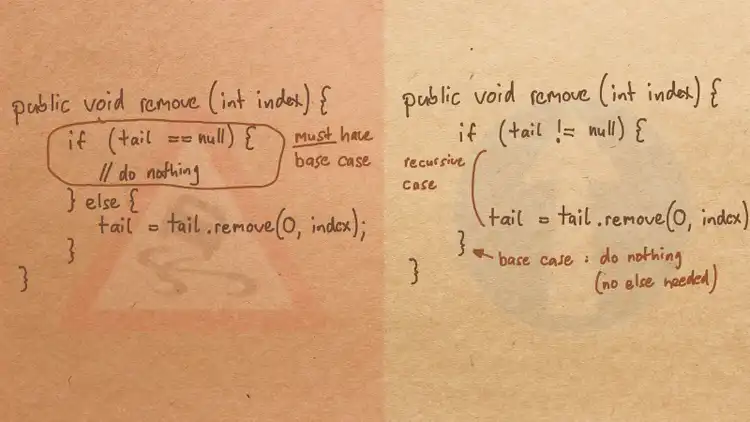 public void remove (int index) {
if (tail == null) {
// do nothing
} else {
tail = tail.remove(0, index);
}
}
must have
base case
public void remove (int index) {
if (tail != null) {
recursive
case
tail = tail.remove(0, index)
}
base case : do nothing
(no else needed)
}